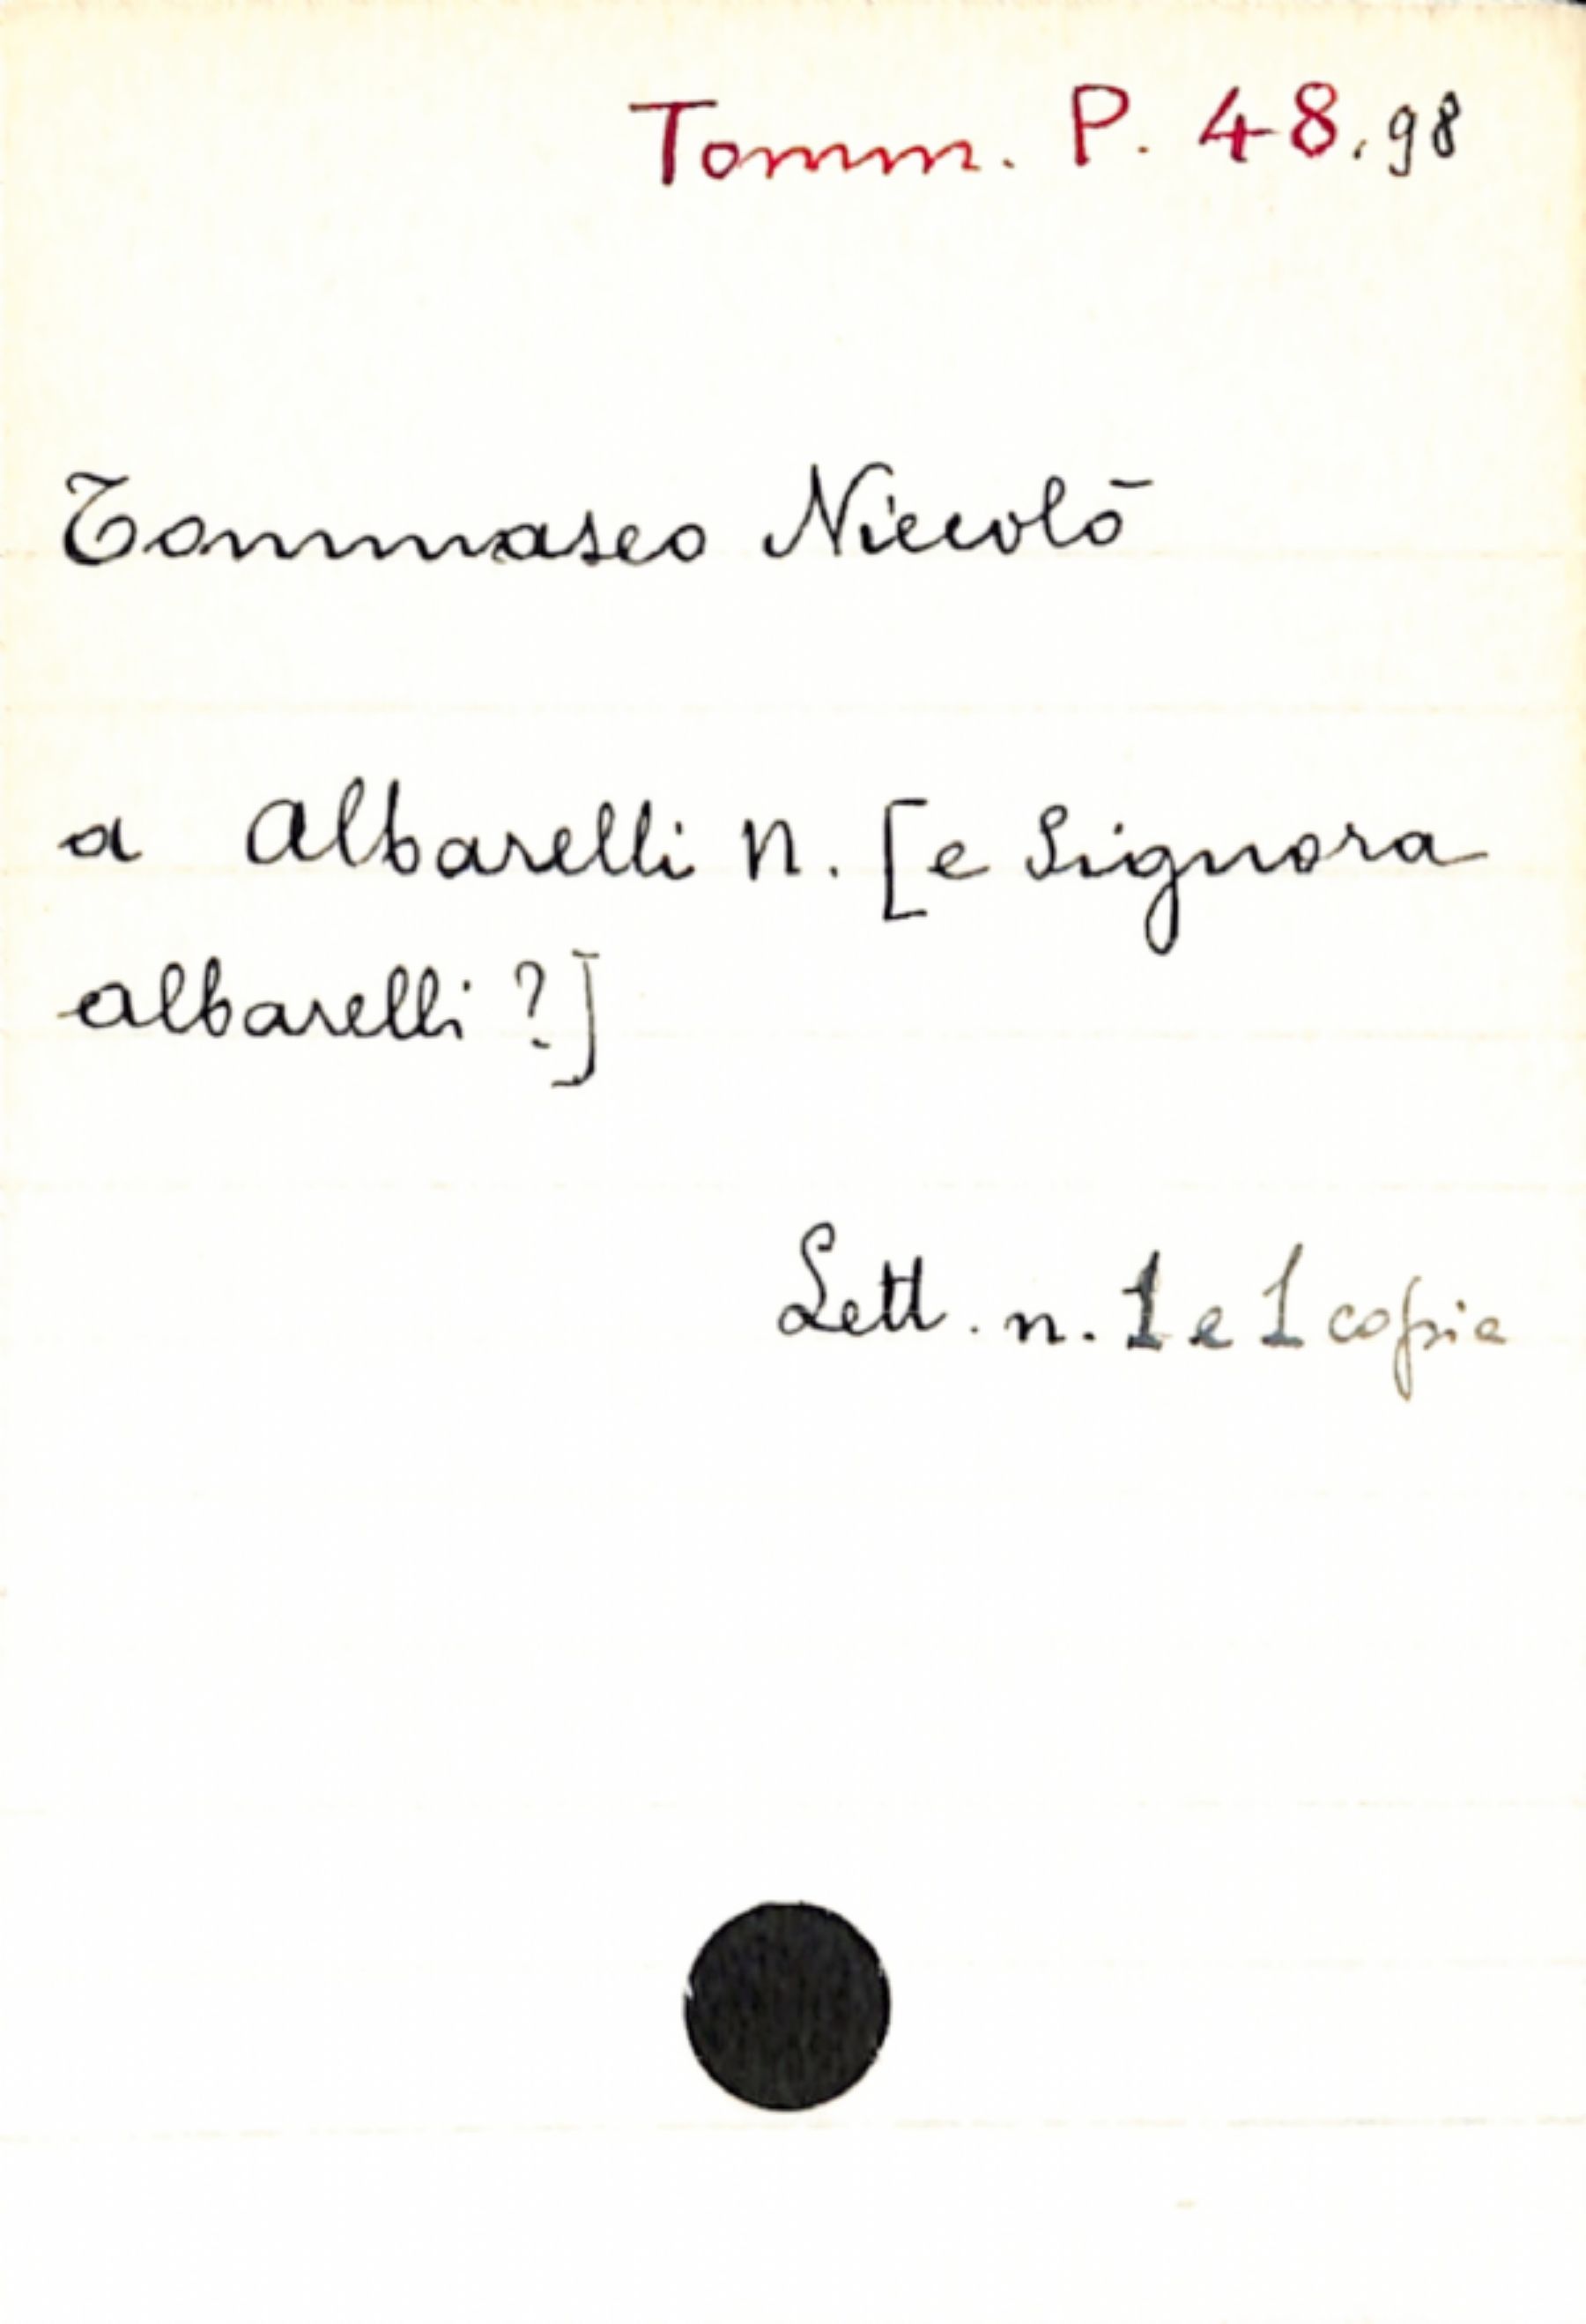 Tomm. P. 48.98
Tommaseo Niccolò
a Albarelli N. [e Signora
Albarelli ?]
Lett. n. 1 e 1 copia